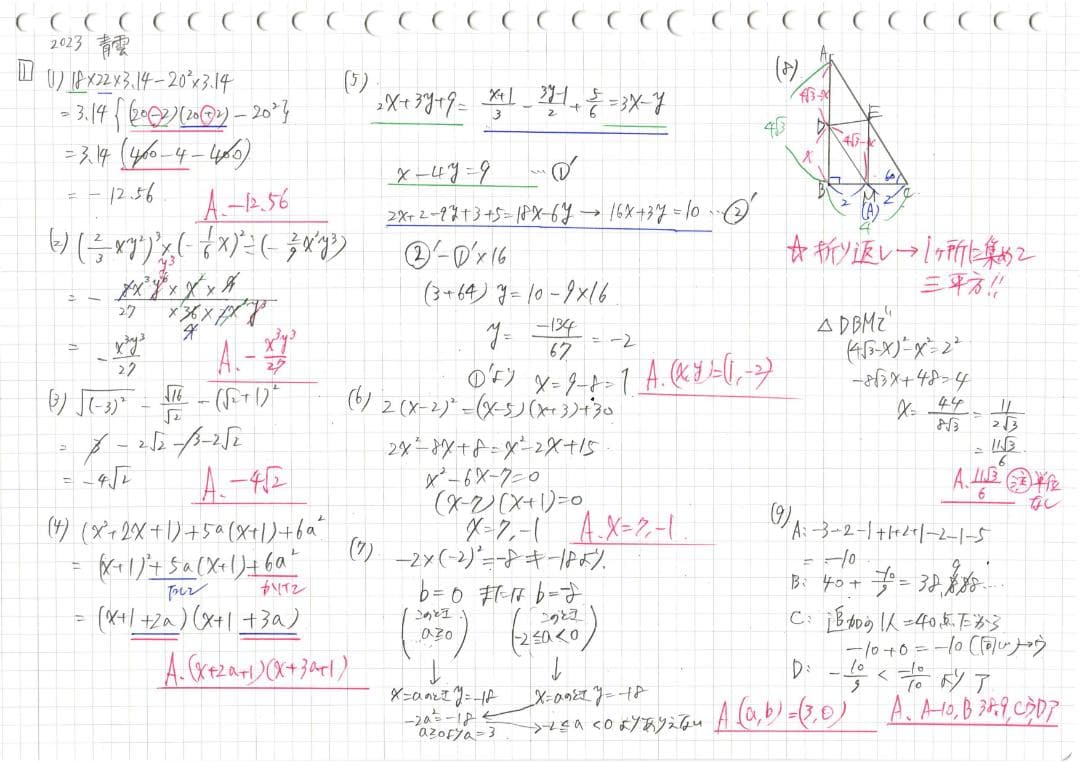 2023 青雲
1
(1) 18×22×3.14-20²×3.14
=3.14{(20-2)(20+2)-20²}
=3.14(400-4-400)
=-12.56
A.-12.56
(2) (2/3 xy²)³×(-1/6 x)²÷(-2/9 x²y³)
y³
=- 8x³y⁶×x²×9 / 27×36×2x²y³
4
= -x³y³/27
A.-x³y³/27
(3) √(-3)² - √16/√2 - (√2+1)²
= 3-2√2-3-2√2
=-4√2
A.-4√2
(4) (x²+2x+1)+5a(x+1)+6a²
=(x+1)²+5a(x+1)+6a²
たして かけて
=(x+1+2a)(x+1+3a)
A.(x+2a+1)(x+3a+1)
(5)
2x+3y+9= x+1/3 - 3y-1/2 + 5/6 =3x-y
x-4y=9 …①'
2x+2-9y+3+5=18x-6y→16x+3y=10…②'
②'-①'×16
(3+64)y=10-9×16
y= -134/67 =-2
①'より x=9-8=1
A.(x,y)=(1,-2)
(6) 2(x-2)²=(x-5)(x+3)+30
2x²-8x+8=x²-2x+15
x²-6x-7=0
(x-7)(x+1)=0
x=7,-1 A.x=7,-1
(7) -2×(-2)²=-8≠-18より、
b=0 または b=-8
(このとき a≧0) (このとき -2≦a<0)
↓ ↓
x=aのときy=-18 x=aのときy=-18
-2a²=-18
a≧0よりa=3 →-2≦a<0よりありえない
A.(a,b)=(3,0)
(8)
A
4√3-x
E
4√3
D
4√3-x
x
60
B 2 M 2 C
(A)
4
☆折り返し→1ヶ所に集めて
三平方!!
△DBMで
(4√3-x)²-x²=2²
-8√3x+48=4
x= 44/8√3 = 11/2√3
= 11√3/6
A.11√3/6 注 単位なし
(9)
A:-3-2-1+1+2+1-2-1-5
=-10
B: 40+ -10/9 =38.888…
9
C: 追加の1人=40点だから
-10+0=-10(同じ)→ウ
D: -10/9 < -10/10 よりア
A、A-10,B38.9,Cウ,Dア